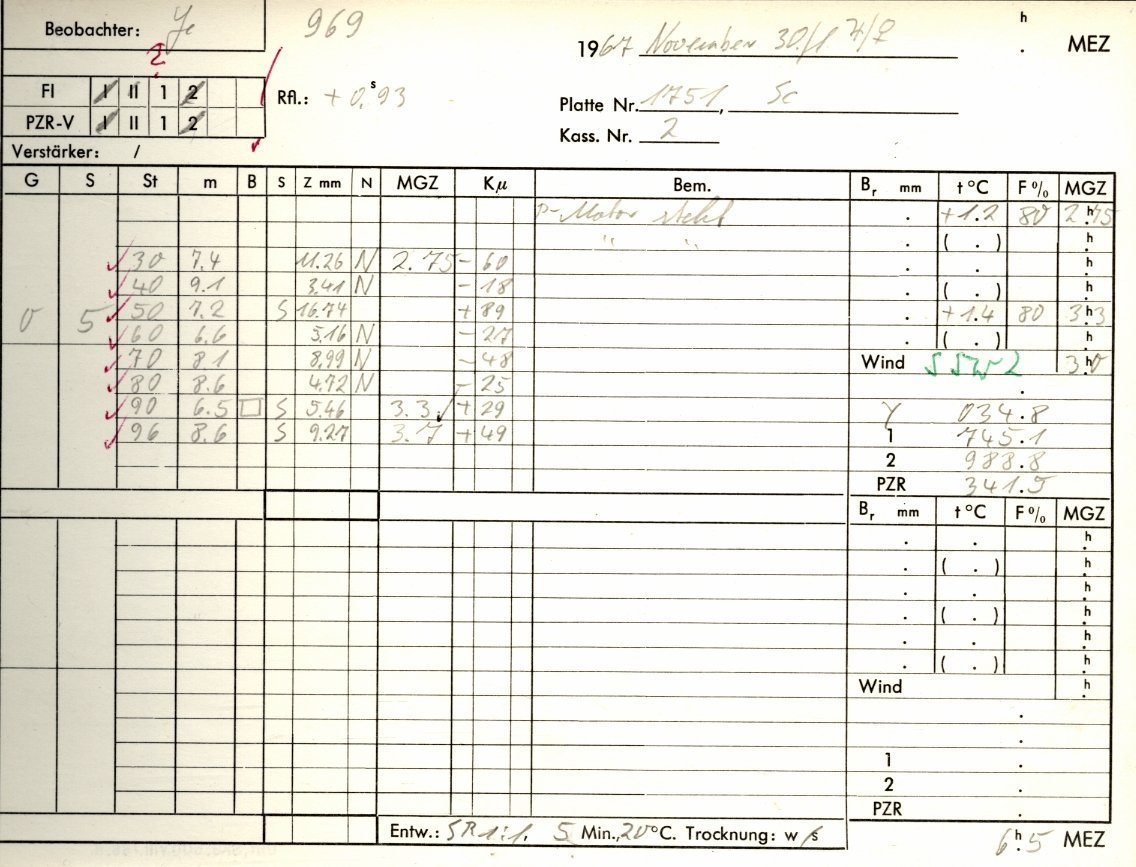 Beobachter: Je 969 h
1967 November 30./1 4/♀ . MEZ
2
FI I II 1 2 Rfl.: + 0.ˢ93
Platte Nr. 1751, Sc
PZR-V I II 1 2
Kass. Nr. 2
Verstärker: /
G S St m B S Z mm N MGZ Kμ Bem. Bᵣ mm t °C F % MGZ
P-Motor steht . +1.2 80 2.ʰ75
" " . ( . ) .ʰ
30 7.4 11.26 N 2.75 - 60 . . .ʰ
40 9.1 3.41 N - 18 . ( . ) .ʰ
0 5 50 7.2 S 16.74 + 89 . +1.4 80 3.ʰ3
60 6.6 5.16 N - 27 . ( . ) .ʰ
70 8.1 8.99 N - 48 Wind SSW 2 3.ʰ0
80 8.6 4.72 N - 25 .
90 6.5 □ S 5.46 3.3 + 29 γ 034.8
96 8.6 S 9.27 3.7 + 49 1 745.1
2 988.8
PZR 341.5
Bᵣ mm t °C F % MGZ
. . .ʰ
. ( . ) .ʰ
. . .ʰ
. ( . ) .ʰ
. . .ʰ
. ( . ) .ʰ
Wind .ʰ
.
.
1 .
2 .
PZR .
Entw.: SR 1:1. 5 Min., 20 °C. Trocknung: w/s 6.ʰ5 MEZ